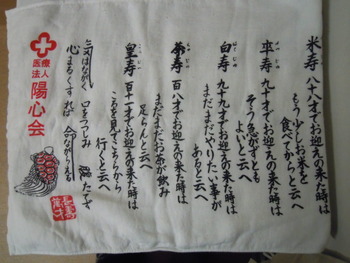 米寿 八十八才でお迎えの来た時は
もう少しお米を
食べてからと云へ
卒寿 九十才でお迎えの来た時は
そう急がずとも
よいと云へ
白寿 九十九才でお迎えの来た時は
まだまだやりたい事が
あると云へ
茶寿 百八才でお迎えの来た時は
まだまだお茶が飲み
足らんと云へ
皇寿 百十一才でお迎えの来た時は
ころを見てこちらから
行くと云へ
気はながく 口をつつしみ
心まるくすれば
医療法人 陽心会